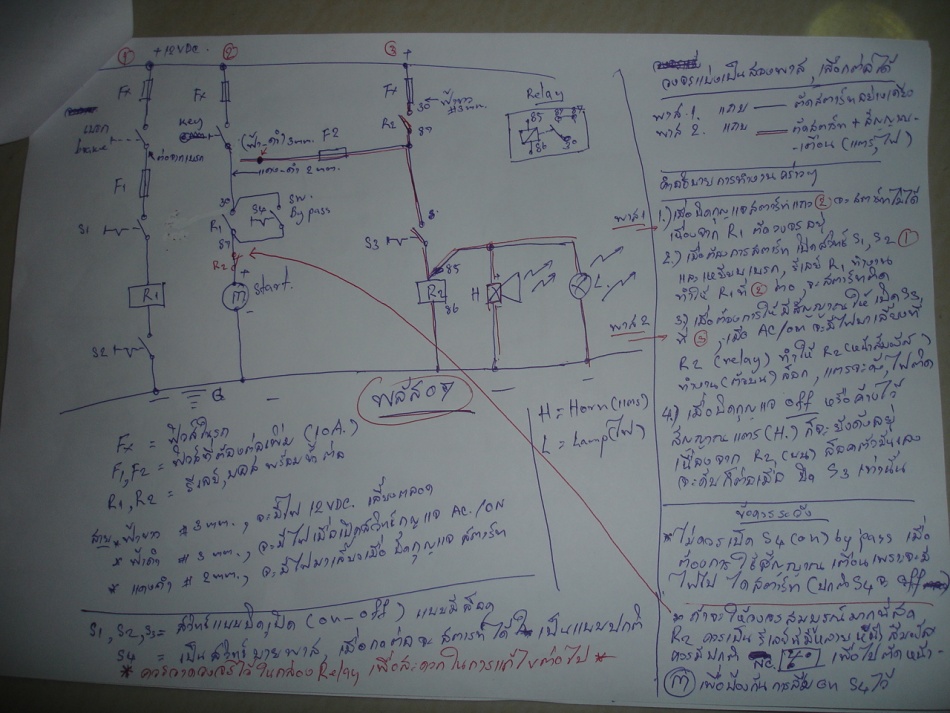 ① +12VDC. ② ③ +
Fx Fx Fx
30 ฟ้าขาว #3mm.
R2 87
เบรก key
ต่อจากเบรก
(ฟ้า-ดำ) 3mm. F2
แดง-ดำ 2mm.
Relay
85 87 87
86 30
F1
30 SW. By pass
S4
R1
87
S1 S3
R2
+
M Start.
-
R1
S2
85
R2
86
H L
G
พลัส 09
H = Horn (แตร)
L = Lamp (ไฟ)
Fx = ฟิวส์ในรถ
F1, F2 = ฟิวส์ที่ต้องต่อเพิ่ม (10A.)
R1, R2 = รีเลย์, พร้อมที่ต่อ
สาย * ฟ้าขาว #3mm., จะมีไฟ 12VDC. เลี้ยงตลอด
* ฟ้าดำ #3mm., จะมีไฟเมื่อเปิดสวิทซ์กุญแจ AC./ON
* แดงดำ #2mm., จะมีไฟมาเลี้ยงเมื่อ บิดกุญแจ สตาร์ท
S1, S2, S3 = สวิทซ์แบบปิด, เปิด (on-off) แบบมีล๊อค
S4 = เป็นสวิทซ์ บายพาส, เมื่อกดต่อจะ สตาร์ทได้ เป็นแบบปกติ
* ควรวาดวงจรไว้ในกล่อง Relay เพื่อสะดวกในการแก้ไขต่อไป *
วงจรแบ่งเป็นสองพาส, เลือกต่อได้
พาส 1. แถบ ตัดสตาร์ทอย่างเดียว
พาส 2. แถบ ตัดสตาร์ท + สัญญาณ-
-เตือน (แตร, ไฟ)
คำอธิบาย การทำงานคร่าวๆ
พาส 1 1.) เมื่อบิดกุญแจสตาร์ทแถว ② จะสตาร์ทไม่ได้
เนื่องจาก R1 ตัดวงจรอยู่
2.) เมื่อต้องการสตาร์ท เปิดสวิทซ์ S1, S2 ①
และเหยียบเบรก, รีเลย์ R1 ทำงาน
ทำให้ R1 ที่ ② ต่อ, จะสตาร์ทติด
3) เมื่อต้องการให้มีสัญญาณ ให้ เปิด S3,
พาส 2 ที่ ③, เมื่อ AC/on จะมีไฟมาเลี้ยงที่
R2 (relay) ทำให้ R2 (หน้าสัมผัส)
ทำงาน (ตัวบน) ล๊อค, แตรจะดัง, ไฟติด
4.) เมื่อบิดกุญแจ off หรือค้างไว้
สัญญาณแตร (H.) ก็จะ ยังดังอยู่
เนื่องจาก R2 (บน) ล๊อคตัวมันเอง
จะดับก็ต่อเมื่อ ปิด S3 เท่านั้น
ข้อควรระวัง
* ไม่ควร เปิด S4 (on) by pass เมื่อ
ต้องการใช้สัญญาณเตือน เพราะจะมี
ไฟไป ไดสตาร์ท (ปกติ S4 จะ off)
* ถ้าจะให้วงจรสมบูรณ์มากที่สุด
R2 ควรเป็น รีเลย์ที่มีหลายหน้าสัมผัส
ควรมีปกติ NC. เพื่อไปตัดหน้า-
M เพื่อป้องกัน การลืม on S4 ไว้